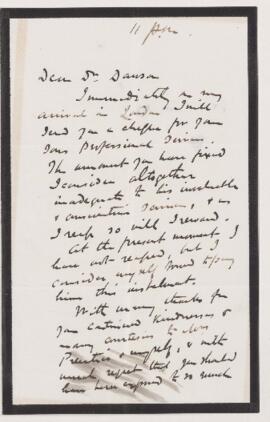 11 Apr.
Dear Dr. Dawson
Immediately on my
arrival in London I will
send you a cheque for your
Sons Professional Services.
The amount you have fixed
I consider altogether
inadequate to his invaluable
& conscientious services, & as
I reap so will I reward.
At the present moment I
have not reaped, but I
consider myself bound to pay
him this instalment.
With many thanks for
your continued kindnesses &
many courtesies to Mrs
& myself, & with
much regret that you should
have been exposed to so much